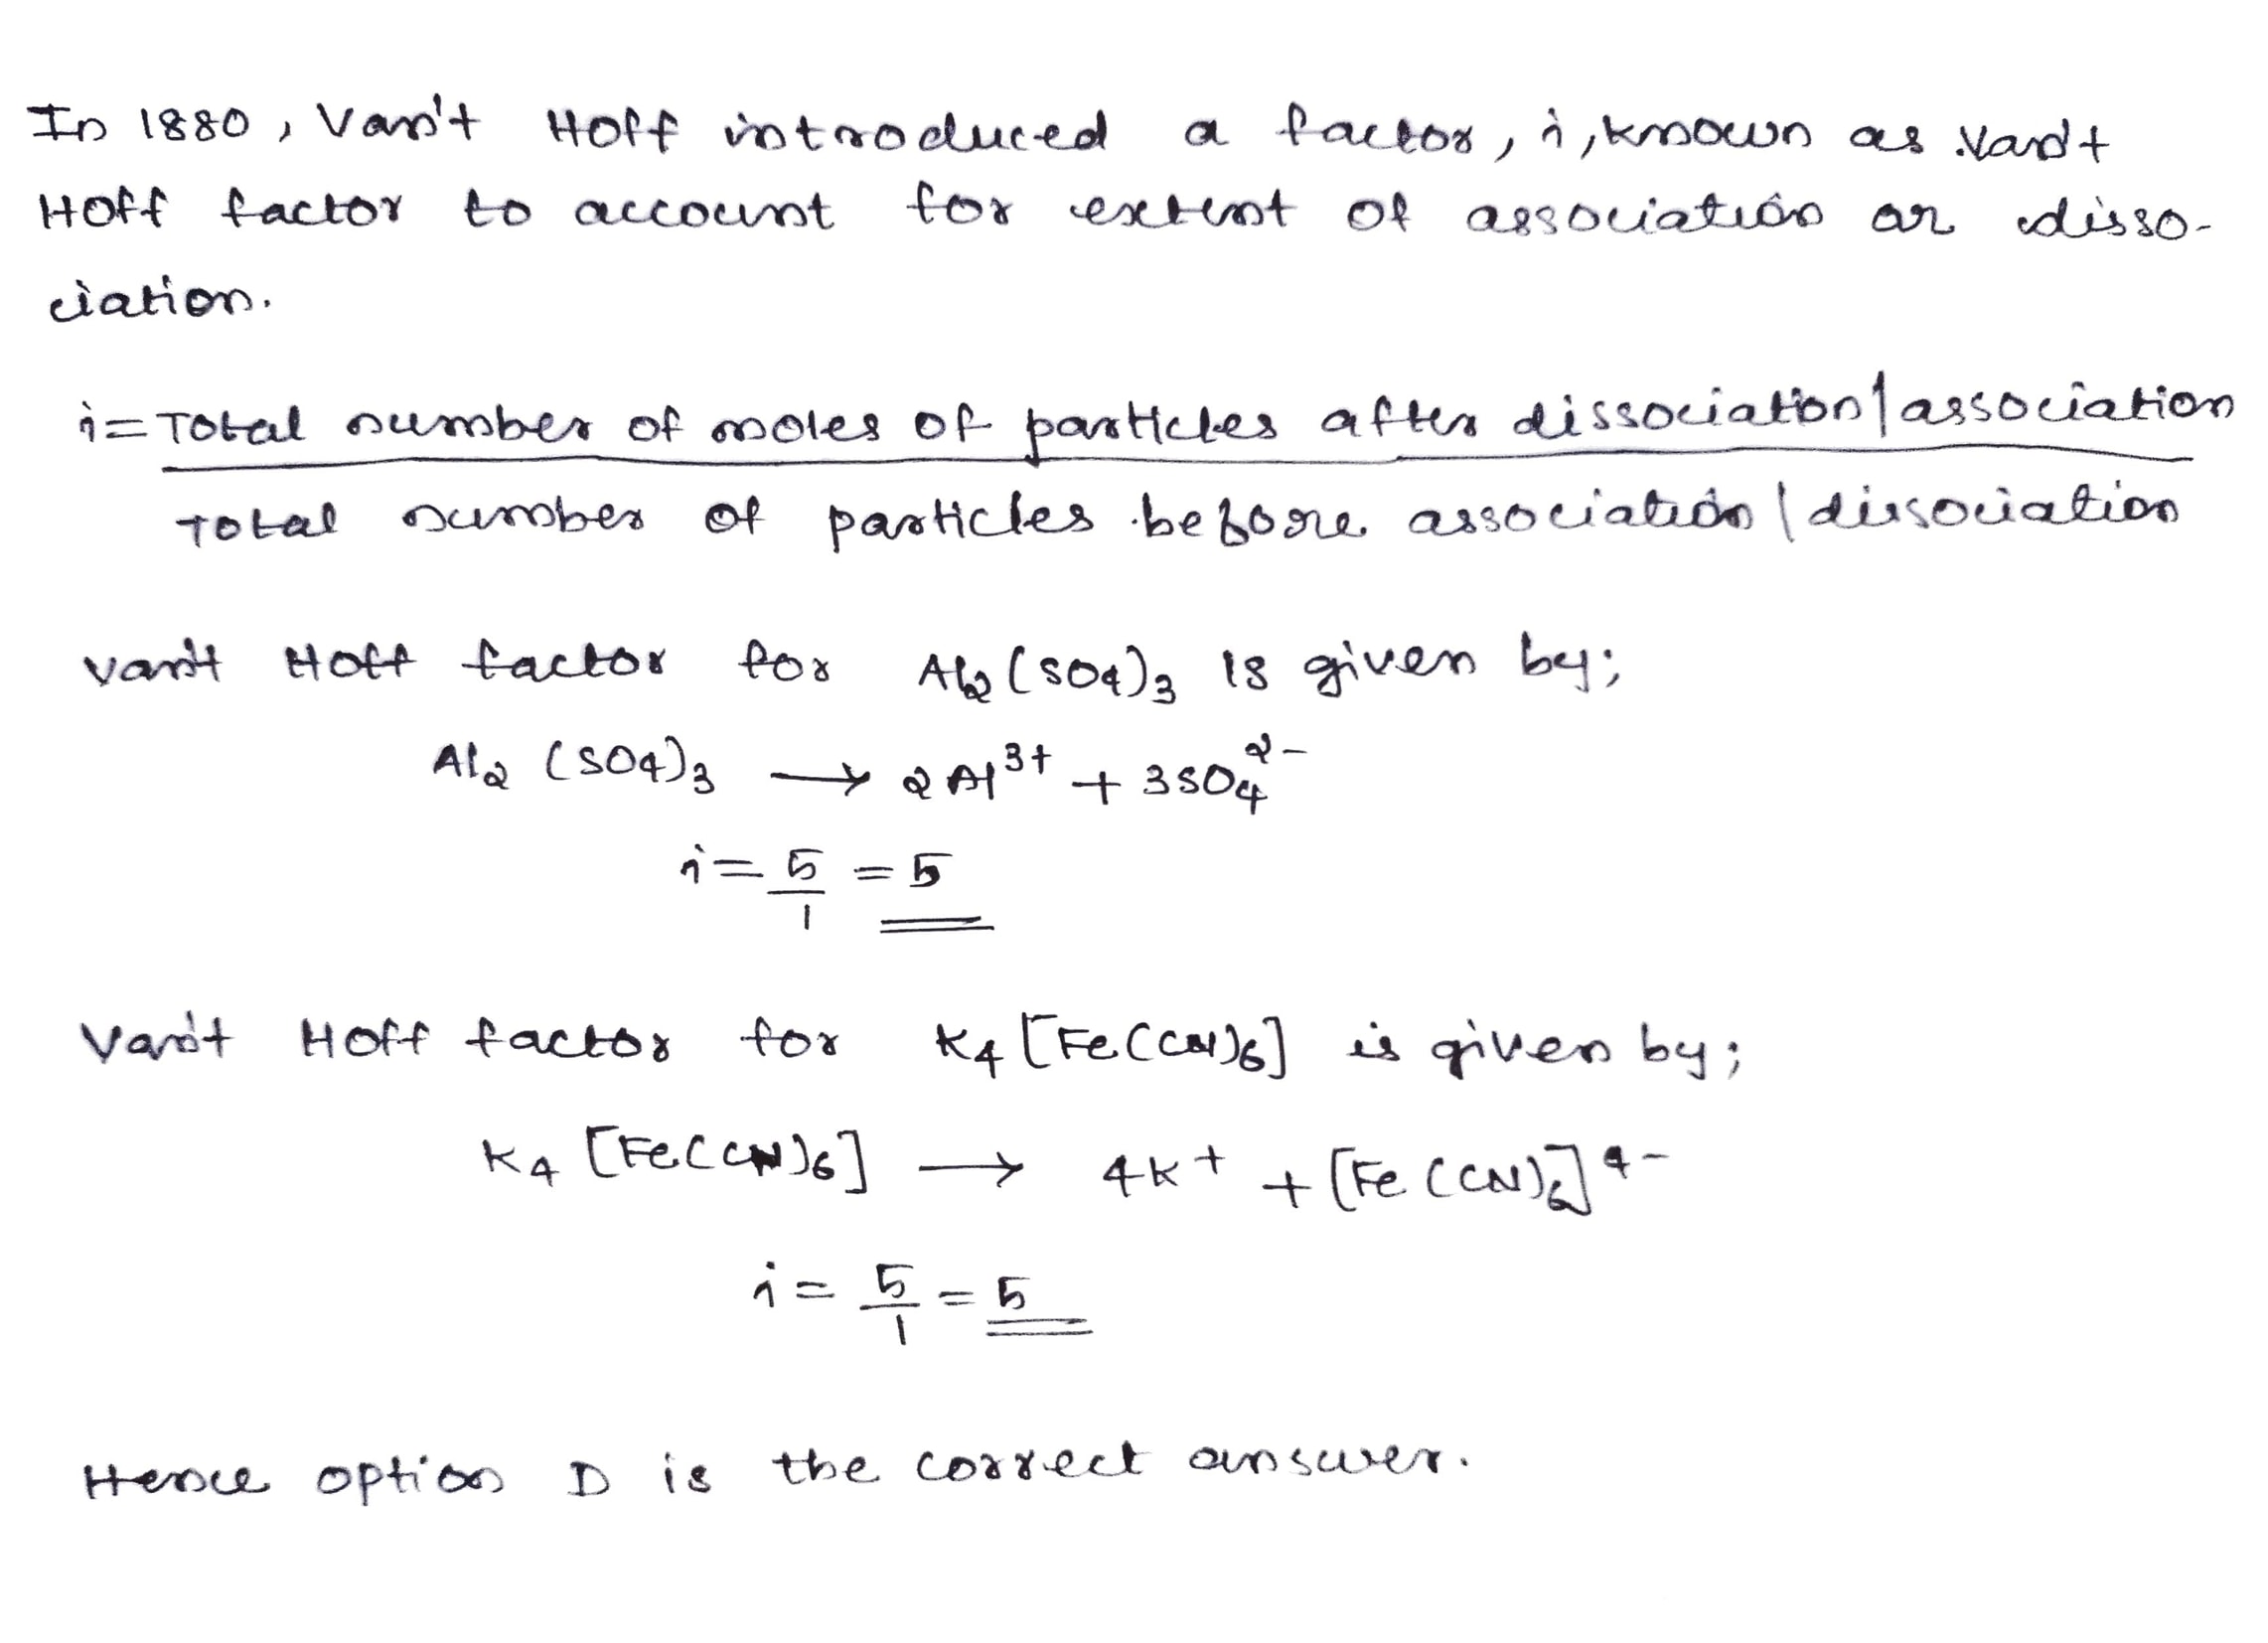 In 1880, Van't Hoff introduced a factor, i, known as Van't
Hoff factor to account for extent of association or disso-
ciation.
i = Total number of moles of particles after dissociation/association
Total number of particles before association/dissociation
Van't Hoff factor for Al2(SO4)3 is given by;
Al2(SO4)3 → 2Al³⁺ + 3SO4²⁻
i = 5/1 = 5
Van't Hoff factor for K4[Fe(CN)6] is given by;
K4[Fe(CN)6] → 4K⁺ + [Fe(CN)6]⁴⁻
i = 5/1 = 5
Hence option D is the correct answer.